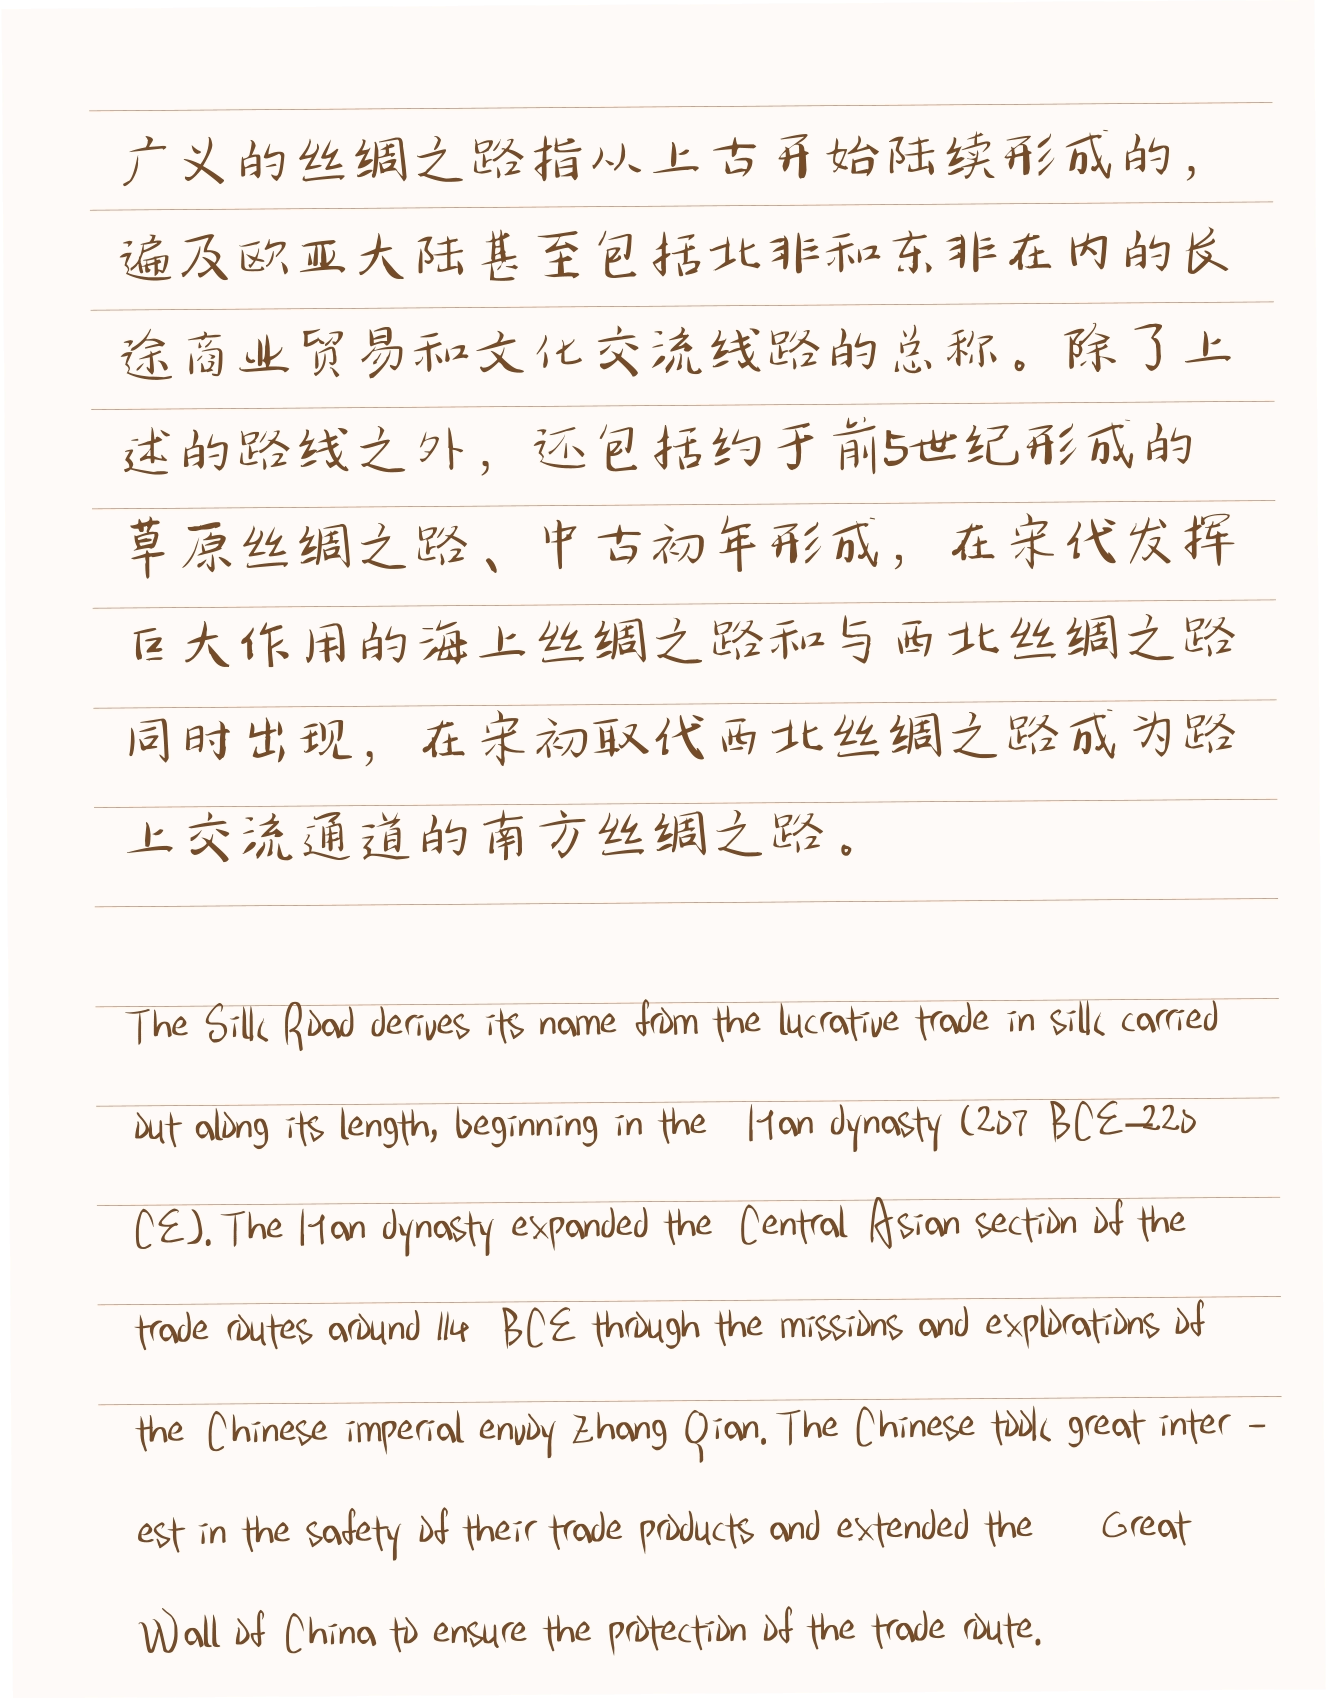 广义的丝绸之路指从上古开始陆续形成的，
遍及欧亚大陆甚至包括北非和东非在内的长
途商业贸易和文化交流线路的总称。除了上
述的路线之外，还包括约于前5世纪形成的
草原丝绸之路、中古初年形成，在宋代发挥
巨大作用的海上丝绸之路和与西北丝绸之路
同时出现，在宋初取代西北丝绸之路成为路
上交流通道的南方丝绸之路。
The Silk Road derives its name from the lucrative trade in silk carried
out along its length, beginning in the Han dynasty (207 BCE–220
CE). The Han dynasty expanded the Central Asian section of the
trade routes around 114 BCE through the missions and explorations of
the Chinese imperial envoy Zhang Qian. The Chinese took great inter-
est in the safety of their trade products and extended the Great
Wall of China to ensure the protection of the trade route.